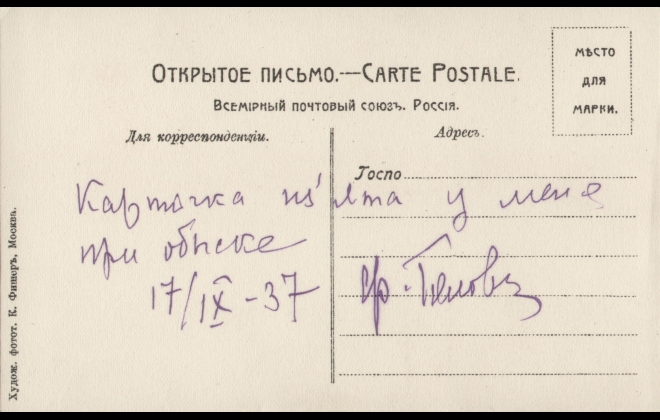 ОТКРЫТОЕ ПИСЬМО.—CARTE POSTALE.
ВСЕМІРНЫЙ ПОЧТОВЫЙ СОЮЗЪ. РОССІЯ.
МѢСТО
ДЛЯ
МАРКИ.
Для корреспонденціи.
Адресъ.
Госпо
Карточка из'ята у меня
при обыске
17/IX-37
гр.
Худож. фотот. К. Фишеръ, Москва.